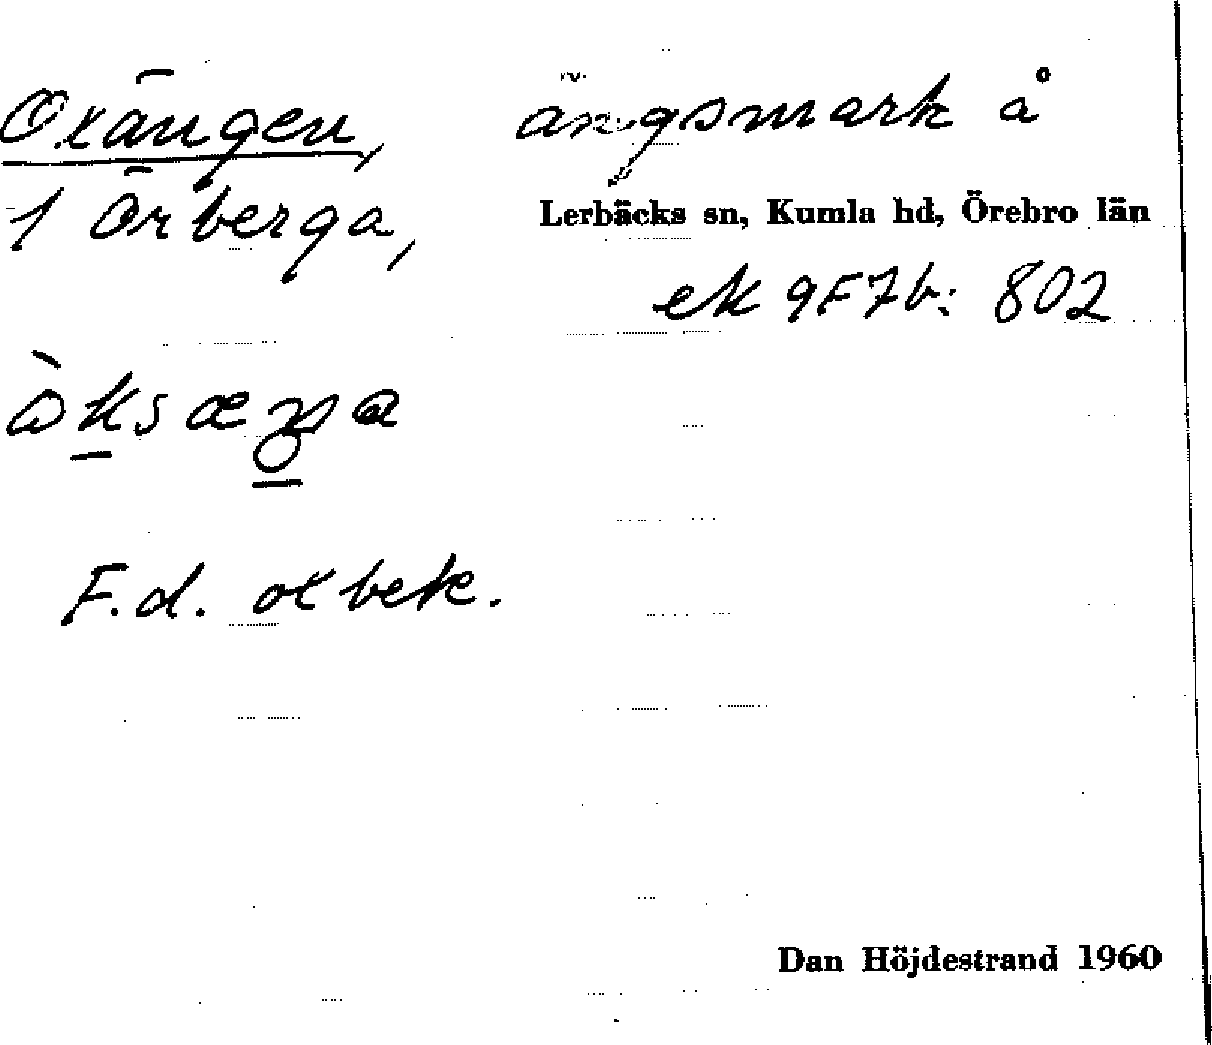 Oxängen, ängsmark å
1 Örberga, Lerbäcks sn, Kumla hd, Örebro län
ek 9F7b: 802
F.d. oxbete.
Dan Höjdestrand 1960